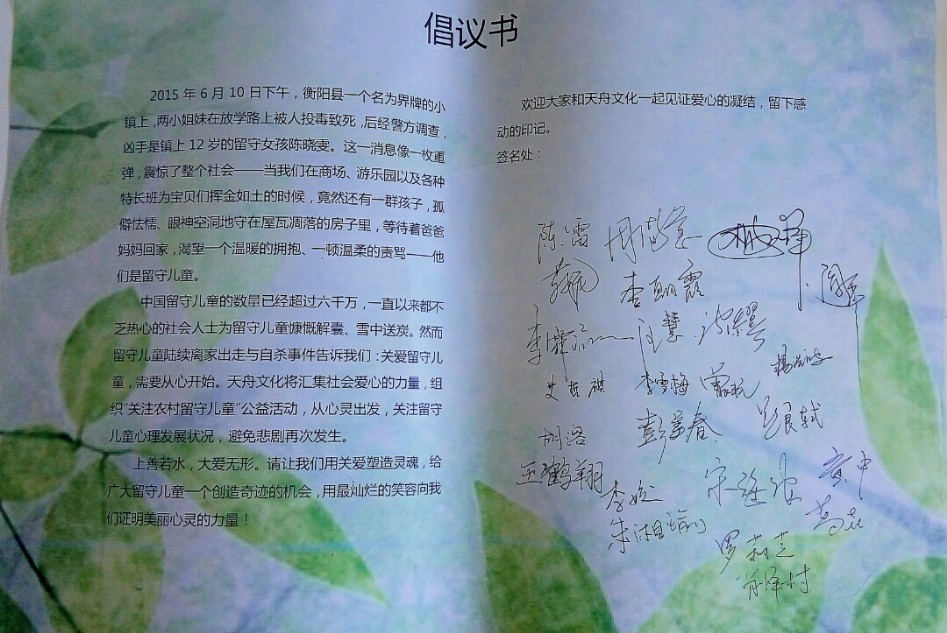 倡议书
2015 年 6 月 10 日下午，衡阳县一个名为界牌的小
镇上，两小姐妹在放学路上被人投毒致死，后经警方调查，
凶手是镇上 12 岁的留守女孩陈晓雯。这一消息像一枚重
弹，震惊了整个社会——当我们在商场、游乐园以及各种
特长班为宝贝们挥金如土的时候，竟然还有一群孩子，孤
僻怯懦、眼神空洞地守在屋瓦凋落的房子里，等待着爸爸
妈妈回家，渴望一个温暖的拥抱、一顿温柔的责骂——他
们是留守儿童。
中国留守儿童的数量已经超过六千万，一直以来都不
乏热心的社会人士为留守儿童慷慨解囊、雪中送炭。然而
留守儿童陆续离家出走与自杀事件告诉我们：关爱留守儿
童，需要从心开始。天舟文化将汇集社会爱心的力量，组
织“关注农村留守儿童”公益活动，从心灵出发，关注留守
儿童心理发展状况，避免悲剧再次发生。
上善若水，大爱无形。请让我们用关爱塑造灵魂，给
广大留守儿童一个创造奇迹的机会，用最灿烂的笑容向我
们证明美丽心灵的力量！
欢迎大家和天舟文化一起见证爱心的凝结，留下感
动的印记。
签名处：
陈雷
李朝霞
艾哲祺 李雪梅
胡洛 彭美春
王鹤翔
罗莉芝